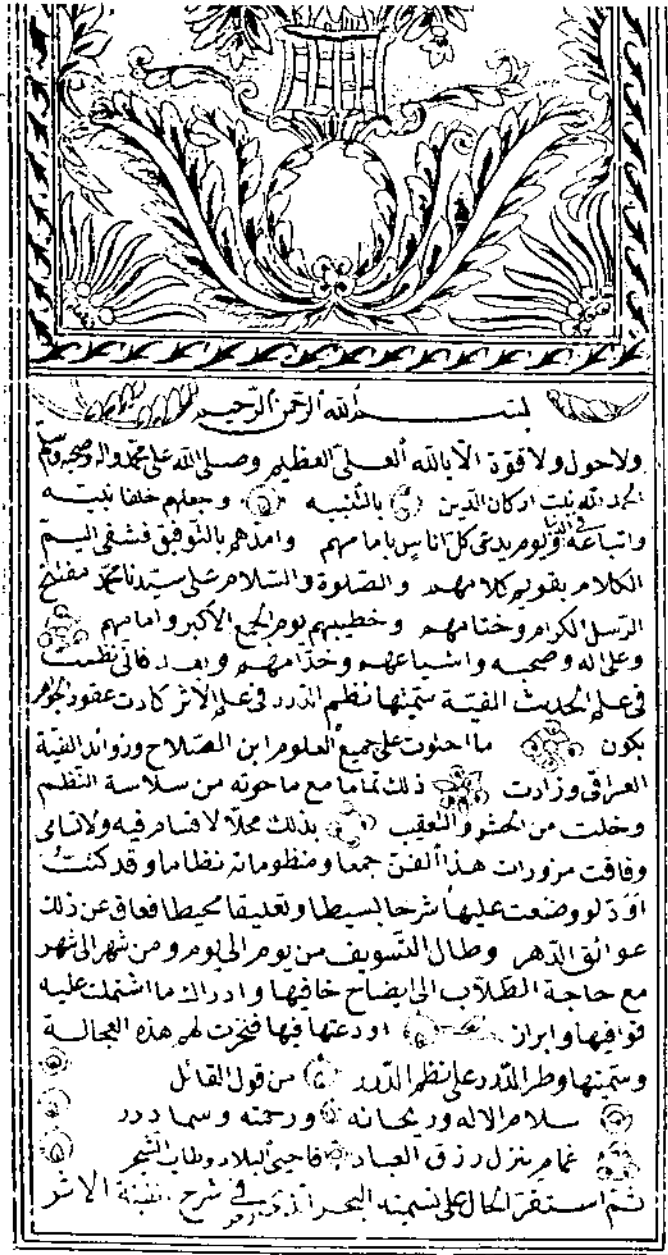 بسم الله الرحمن الرحيم
ولا حول ولا قوة الا بالله العلي العظيم وصلى الله على محمد واله وصحبه وسلم
الحمد لله بيت اركان الدين بالتنبيه وجعلهم خلفا نبيه
واتباعه في الدنيا ويوم يدعى كل اناس بامامهم وامدهم بالتوفيق فشفى اليم
الكلام بقويم كلامهم والصلوة والسلام على سيدنا محمد مفتتح
الرسل الكرام وختامهم وخطيبهم يوم الجمع الاكبر وامامهم
وعلى اله وصحبه واشياعهم وخدامهم وبعد فاني نظمت
في علم الحديث الفية سميتها نظم الدرر في علم الاثر كادت عقود الجواهر
بكون ما احتوت على جميع العلوم ابن الصلاح وزوائد الفية
العراقي وزادت ذلك تماما مع ما حوته من سلاسة النظم
وخلت من الحشو والتعقيب بذلك محلا لا تسام فيه ولا تسامى
وفاقت مزورات هذا الفن جمعا ومنظوماته نظاما وقد كنت
اود لو وضعت عليها شرحا بسيطا وتعليقا محيطا فعاق عن ذلك
عوائق الدهر وطال التسويف من يوم الى يوم ومن شهر الى شهر
مع حاجة الطلاب الى ايضاح خافيها وادراك ما اشتملت عليه
قوافيها وابراز اودعتها فيها فنجزت لهم هذه العجالة
وسميتها وطر الدرر على نظم الدرر من قول القائل
سلام الاله وريحانه ورحمته وسما درر
غمام ينزل رزق العباد فاحيى البلاد وطاب الشجر
ثم استقر الحال على تسميته البحر الذي في شرح الفية الاثر